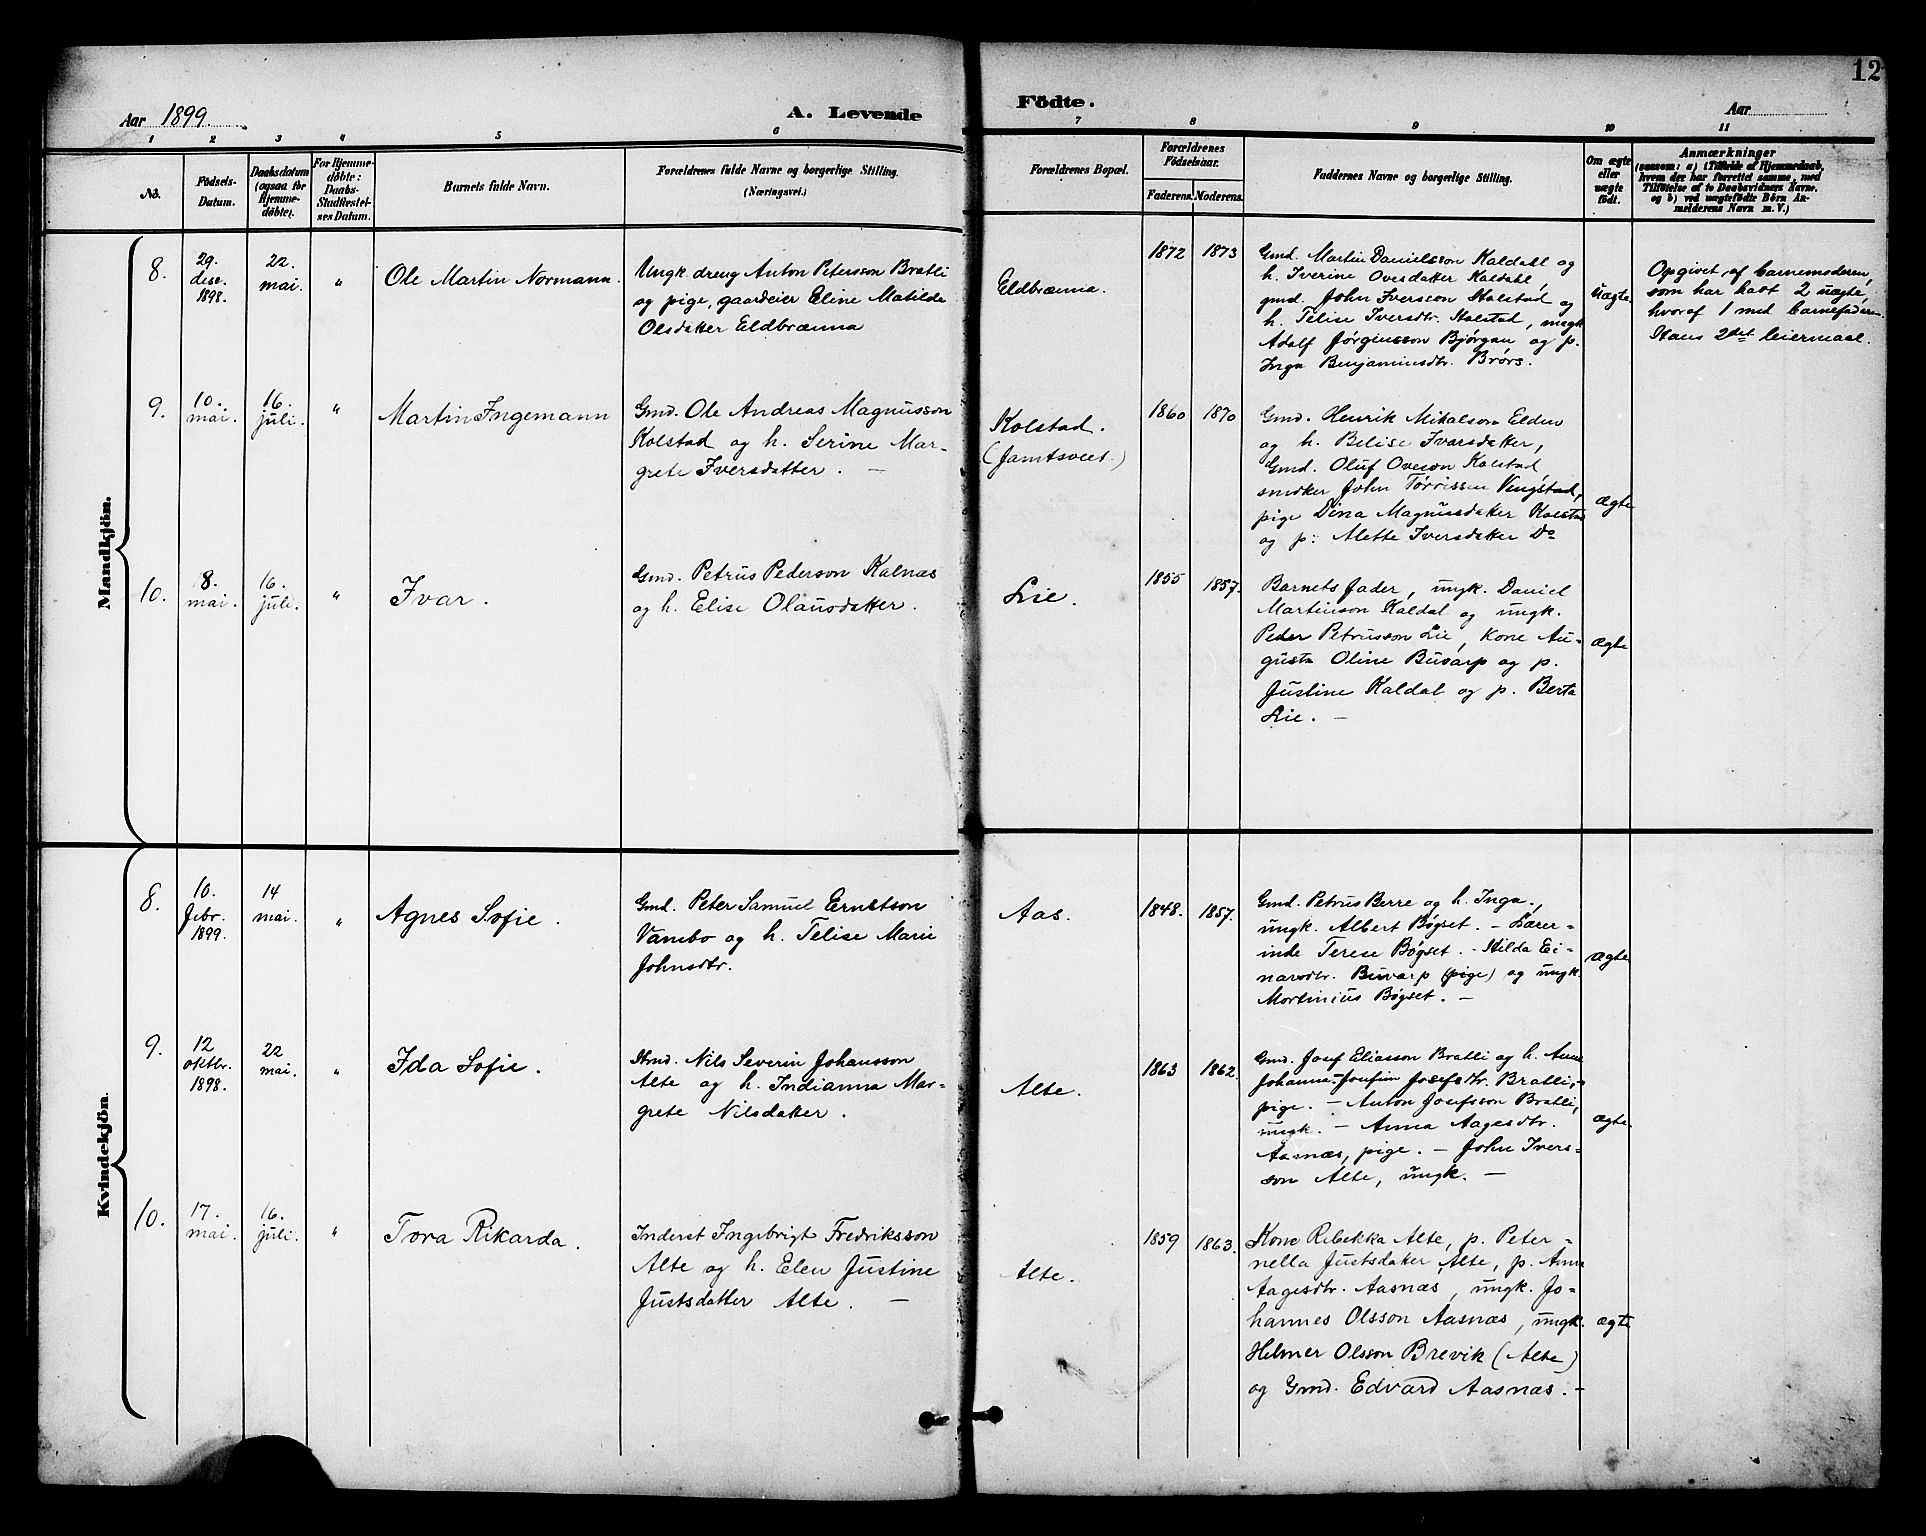 12
Aar 1899.
A. Levende
Födte.
Aar
1
2
3
4
5
6
7
8
9
10
11
No.
Födsels-
Datum.
Daabsdatum
(ogsaa for
Hjemme-
döbte).
For Hjemme-
döbte:
Daabs-
Stadfæstel-
ses Datum.
Barnets fulde Navn.
Forældrenes fulde Navne og borgerlige Stilling.
(Næringsvei.)
Forældrenes Bopæl.
Forældrenes
Födselsaar.
Faderens.
Moderens.
Faddernes Navne og borgerlige Stilling.
Om ægte
eller
uægte
födt.
Anmærkninger
(saasom: a) i Tilfælde af Hjemmedaab,
hvem der har forrettet samme, med
Tilföielse af to Daabsvidners Navne.
og b) ved uægtefödte Börn An-
melderens Navn m. V.)
Mandkjön.
8.
29.
dese.
1898.
22.
mai.
"
Ole Martin Normann.
Ungk dreng Anton Petersson Bratli
og pige, gaardeier Eline Matilde
Olsdatter Eldbrænna
Eldbrænna.
1872
1873
Gmd. Martin Danielsson Kaldahl og
h. Iverine Ovesdatter Kaldahl,
gmd. John Iversson Kolstad og
h. Telise Iversdtr. Kolstad, ungk
Adolf Jørgensson Bjørgan og p.
Inga Benjaminsdtr. Brørs.
uægte
Opgivet af barnemoderen,
som har havt 2 uægte,
hvoraf 1 med barnefaderen.
Hans 2det leiermaal.
9.
10.
mai.
16.
juli.
"
Martin Ingemann
Gmd. Ole Andreas Magnusson
Kolstad og h. Serine Mar-
grete Iversdatter. —
Kolstad.
(Jamtsveet.)
1860
1870
Gmd. Henrik Mikalson Elden
og h. Belise Ivarsdatter,
Gmd. Oluf Oveson Kolstad,
snidker John Tørrissen Vengstad,
pige Dina Magnusdatter Kolstad
og p: Mette Iversdatter Do
ægte
10.
8.
mai.
16.
juli.
"
Ivar.
Gmd. Petrus Pederson Kalnæs
og h. Elise Olausdatter.
Lie.
1855
1857.
Barnets fader, ungk. Daniel
Martinson Kaldal og ungk.
Peder Petrusson Lie, kone Au-
gusta Oline Buvarp og p.
Justine Kaldal og p. Berta
Lie. —
ægte
Kvindekjön.
8.
10.
febr.
1899.
14
mai.
"
Agnes Sofie.
Gmd. Peter Samuel Ernstson
Vambo og h. Telise Marie
Johnsdtr.
Aas.
1848.
1857.
Gmd. Petrus Berre og h. Inga.,
ungk. Albert Bøgset. — Lærer-
inde Terese Bøgset. - Hilda Ei-
narsdtr. Buvarp (pige) og ungk.
Mortinius Bøgset. —
ægte
9.
12
oktbr.
1898.
22
mai.
"
Ida Sofie.
Strnd. Nils Severin Johansson
Alte og h. Indianna Mar-
grete Nilsdatter.
Alte.
1863
1862.
Gmd. Josef Eliasson Bratli og h. Anne
Johanna - Josefine Josefsdtr. Bratli,-
pige. — Anton Josefsson Bratli,
ungk. — Anna Aagesdtr.
Aasnæs, pige. — John Ivers-
son Alte, ungk. —
ægte.
10.
17.
mai.
16.
juli.
"
Tora Rikarda.
Inderst Ingebrigt Fredriksson
Alte og h. Elen Justine
Justsdatter Alte. —
Alte.
1859
1863.
Kone Rebekka Alte, p. Peter-
nella Justsdatter Alte, p. Anna
Aagesdtr. Aasnæs, ungk. Jo-
hannes Olsson Aasnæs, ungk.
Helmer Olsson Brevik (Alte)
og Gmd. Edvard Aasnæs. -
ægte